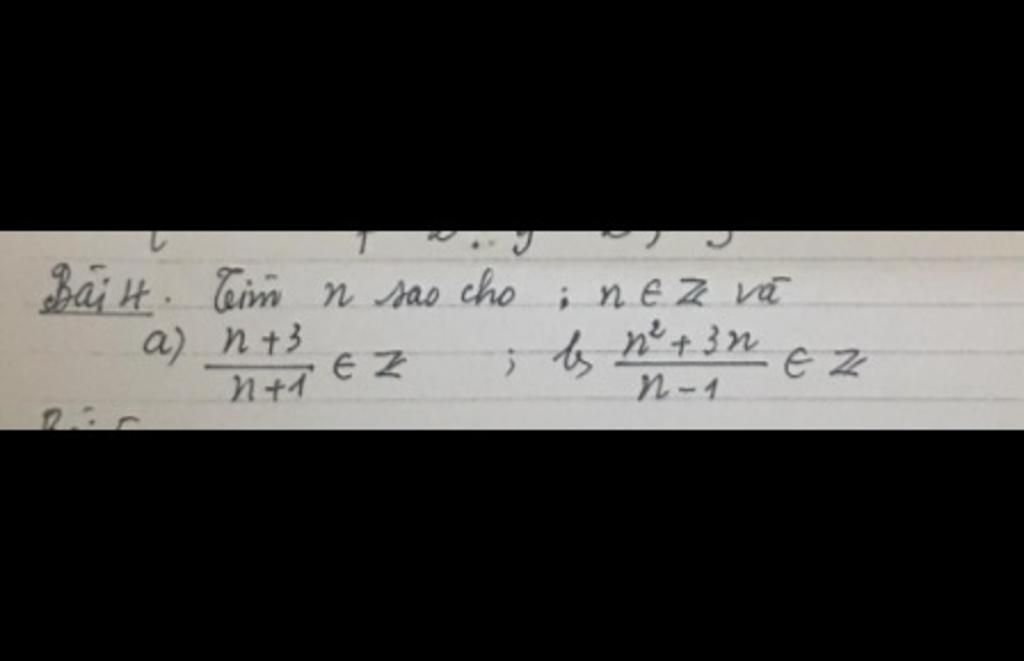 Bài 4. Tìm n sao cho ; n ∈ Z và
a) n+3/n+1 ∈ Z ; b) n²+3n/n-1 ∈ Z